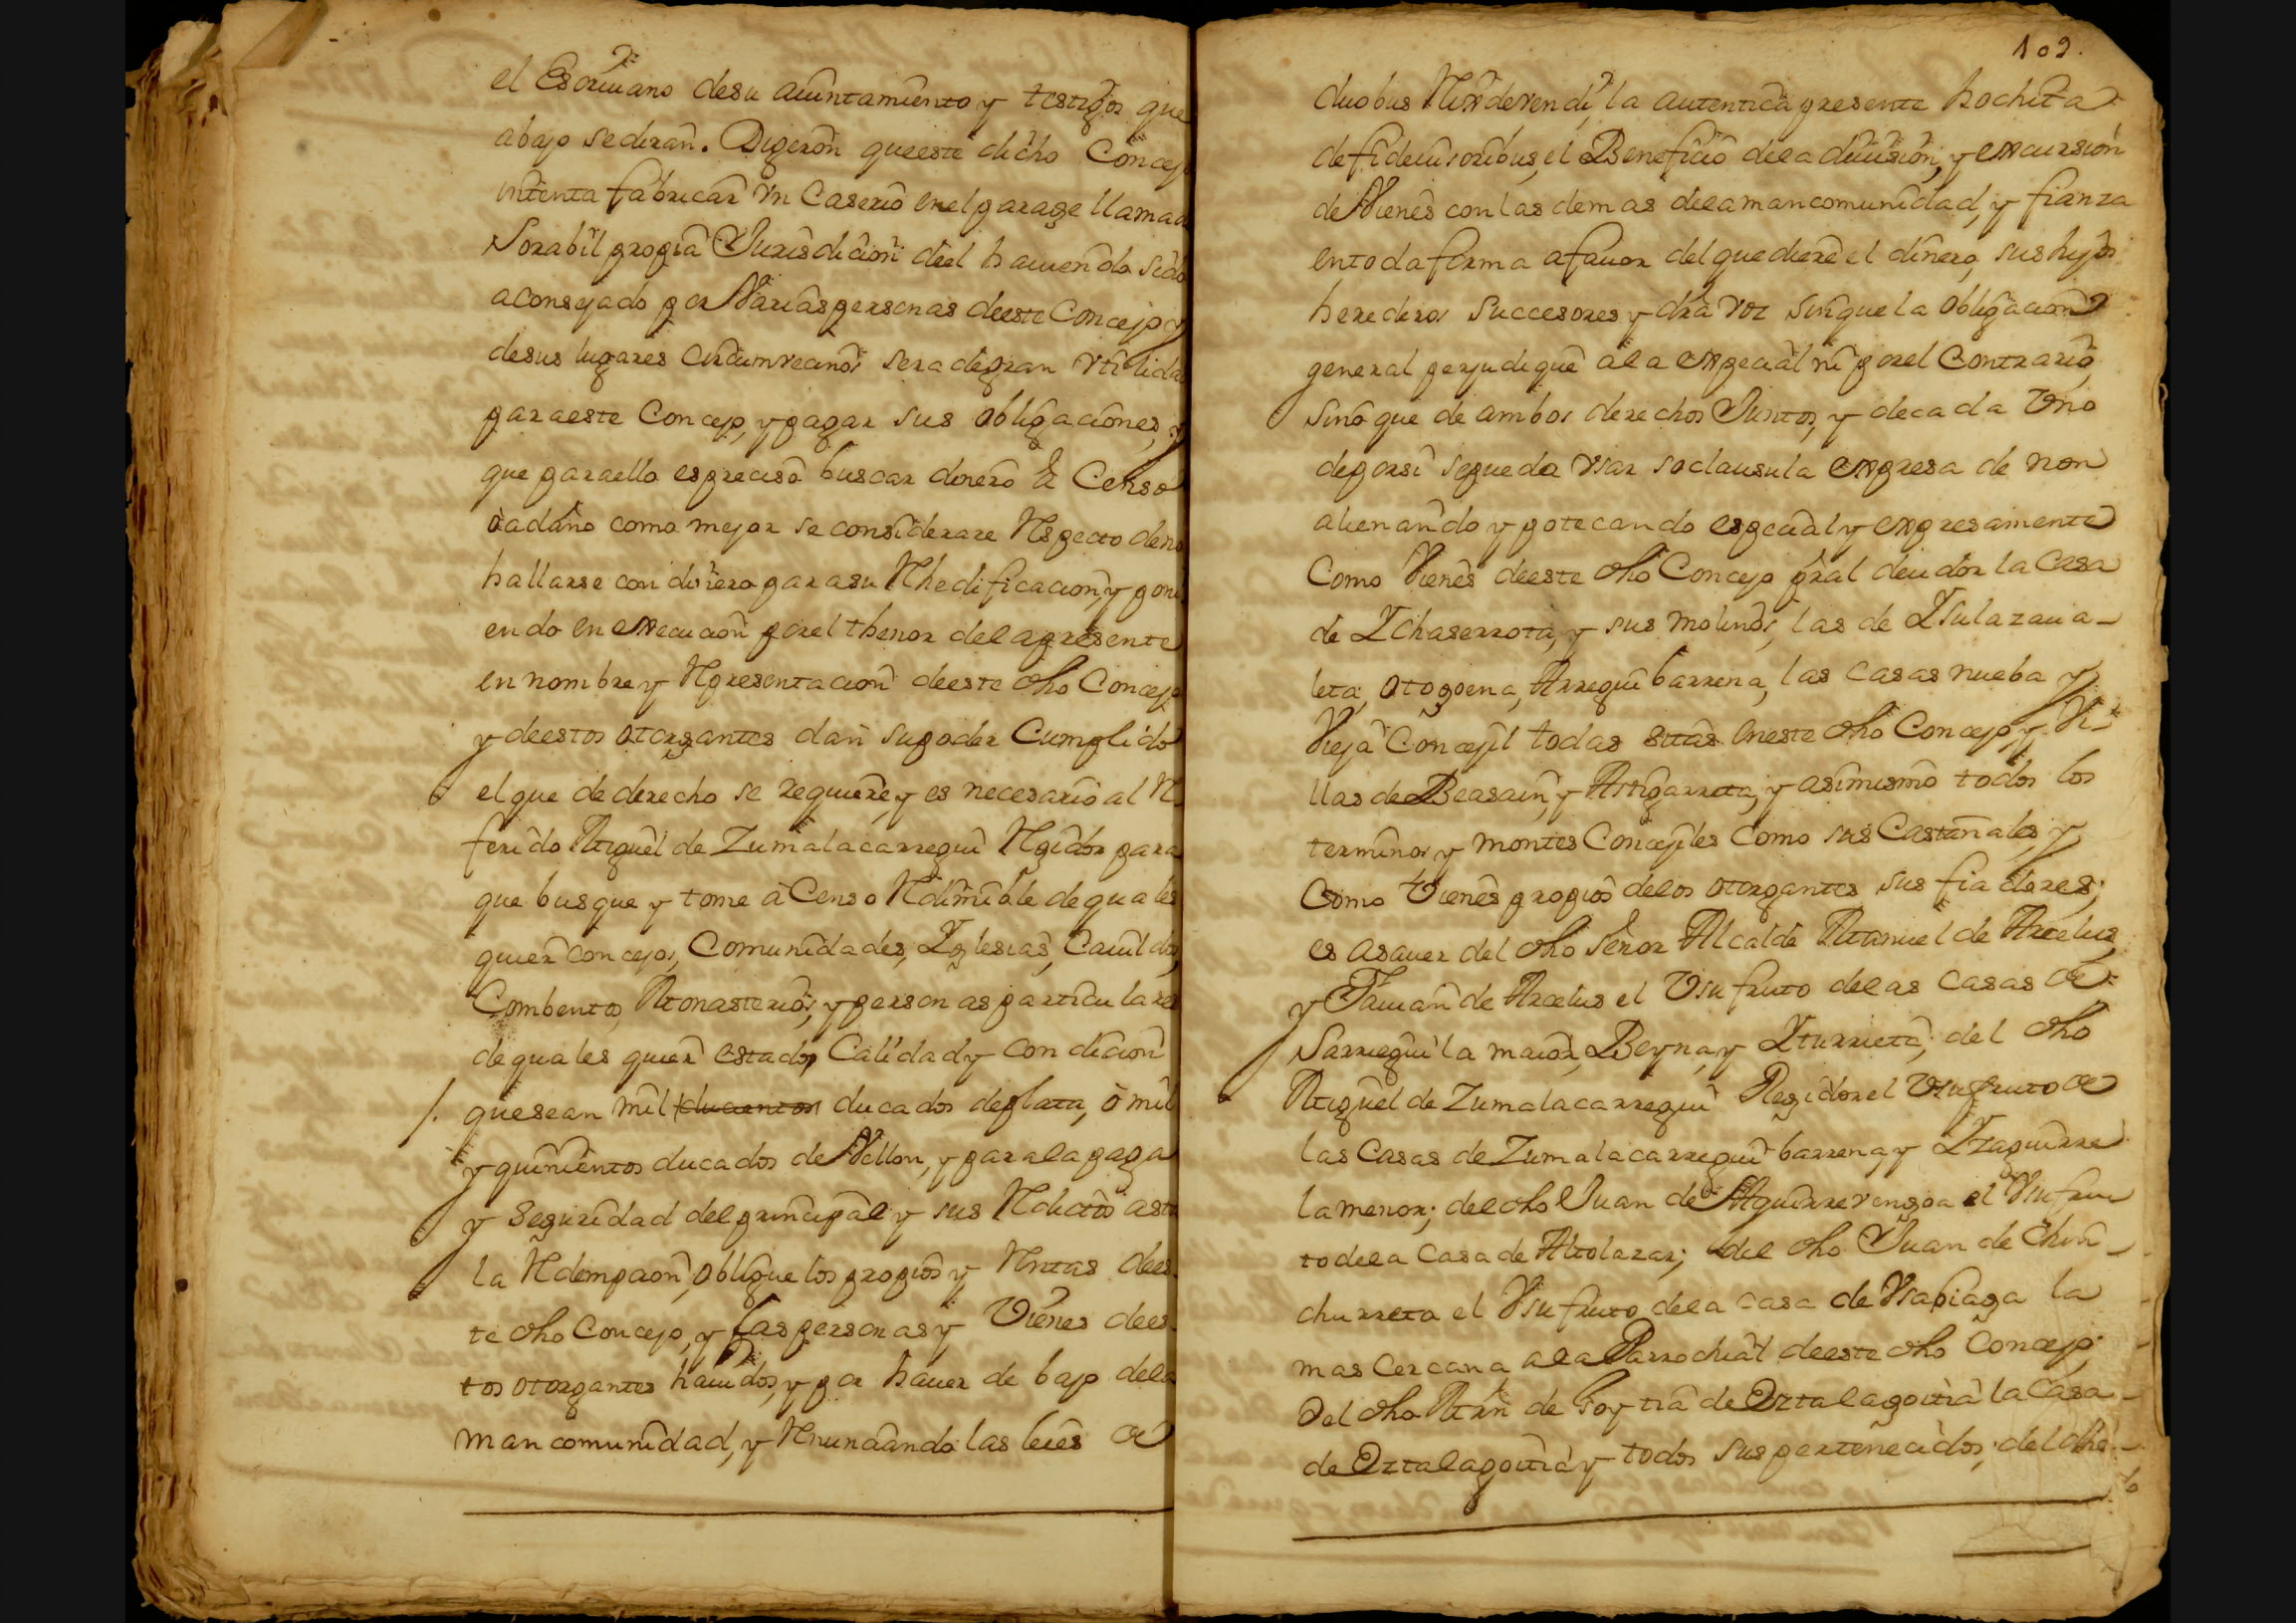 el Escriuano desu aiuntamiento y testigos que
abajo sediran. Digeron queeste dicho Concejo
intenta fabricar vn Caserio enel parage llamado
Sorabil propia Jurisdicion deel hauiendo sido
aconsejado por Varias personas deeste Concejo y
desus lugares circumvecinos sera degran vtilidad
paraeste Concejo, y pagar sus obligaciones, y
que paraello es preciso buscar dinero à Censo
òadaño como mejor se considerare Respecto deno
hallarse con dinero parasu Rhedificacion, y poni
endo en execucion porel thenor dela presente
en nombre y Representacion deeste dho Concejo
y deestos otorgantes dan supoder Cumplido
elque de derecho se requiere, y es necesario al Re
ferido Miguel de Zumalacarregui Regidor para
que busque y tome à Censo Redimible de quales
quier concejos, Comunidades, Iglesias, Cauildos,
Combentos, Monasterios, y personas particulares
de quales quier estado, Calidad y condicion
/. quesean mil ducientos ducados deplata, ò mil
y quinientos ducados de Vellon, y parala paga
y Seguridad del principal y sus Redictos asta
la Redempcion, obligue los propios y Rentas dees
te dho Concejo, y las personas y Vienes dees
tos otorgantes hauidos, y por hauer de bajo dela
mancomunidad, y Renunciando las leies de
109.
duobus Rex devendi, la autentica presente hochita
defideiusoribus, el Beneficio dela diuision, y excursion
de Vienes con las demas dela mancomunidad, y fianza
entoda forma afauor del que diere el dinero, sus hijos
herederos Successores y dra voz sinque la obligacion
general perjudique àla expecial ni porel Contrario,
sino que de ambos derechos Juntos, y decada Vno
deporsi sepueda vsar so clausula expresa de non
alienando ypotecando especial y expresamente
Como Vienes deeste dho Concejo pral deudor la Casa
de Ichaserrota, y sus molinos, las de Ysulazaua-
leta, otogoena, Arreguibarrena, las casas nueba y
Vieja Concejil todas sitas eneste dho Concejo, y Vi-
llas de Beasain, y Astigarreta, y asimismo todos los
terminos y montes Concejiles como sus Castañales, y
Como Vienes propios delos otorgantes sus fiadores;
es asauer del dho Señor Alcalde Manuel de Arcelus,
y Fauian de Arcelus el Vsufruto delas casas de
Sarregui la maior, Beyna, y Yturrieta; del dho
Miguel de Zumalacarregui Regidor el Vsufruto de
las Casas de Zumalacarregui barrena, y Yzaguirre
la menor; del dho Juan de Aguirrevengoa el Vsufru
to dela casa de Altolazar; del dho Juan de Chin-
churreta el Vsufruto dela casa de Vsapiaga la
mas Cercana ala Parrochial deeste dho Concejo;
Del dho Mrn de Goytia de Oztalagoitia la Casa-
de Oztalagoitia y todos sus pertenecidos; del dho